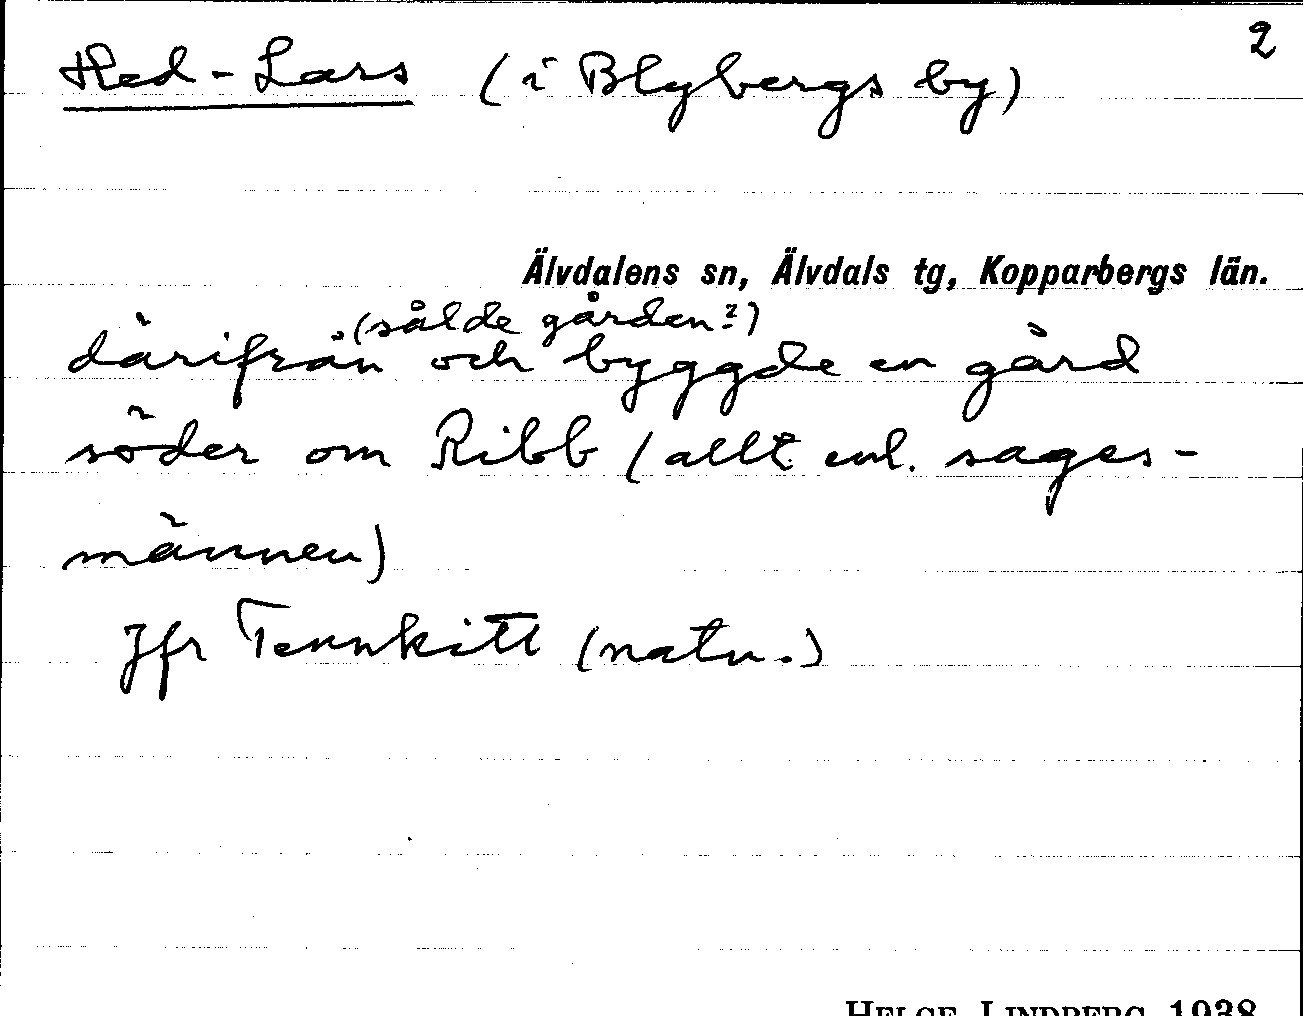 2
Hed-Lars (i Blybergs by)
Älvdalens sn, Älvdals tg, Kopparbergs län.
(sålde gården?)
därifrån och byggde en gård
söder om Ribb (allt enl. sages-
männen)
Jfr Tennkitt (natn.)
HELGE LINDBERG 1938